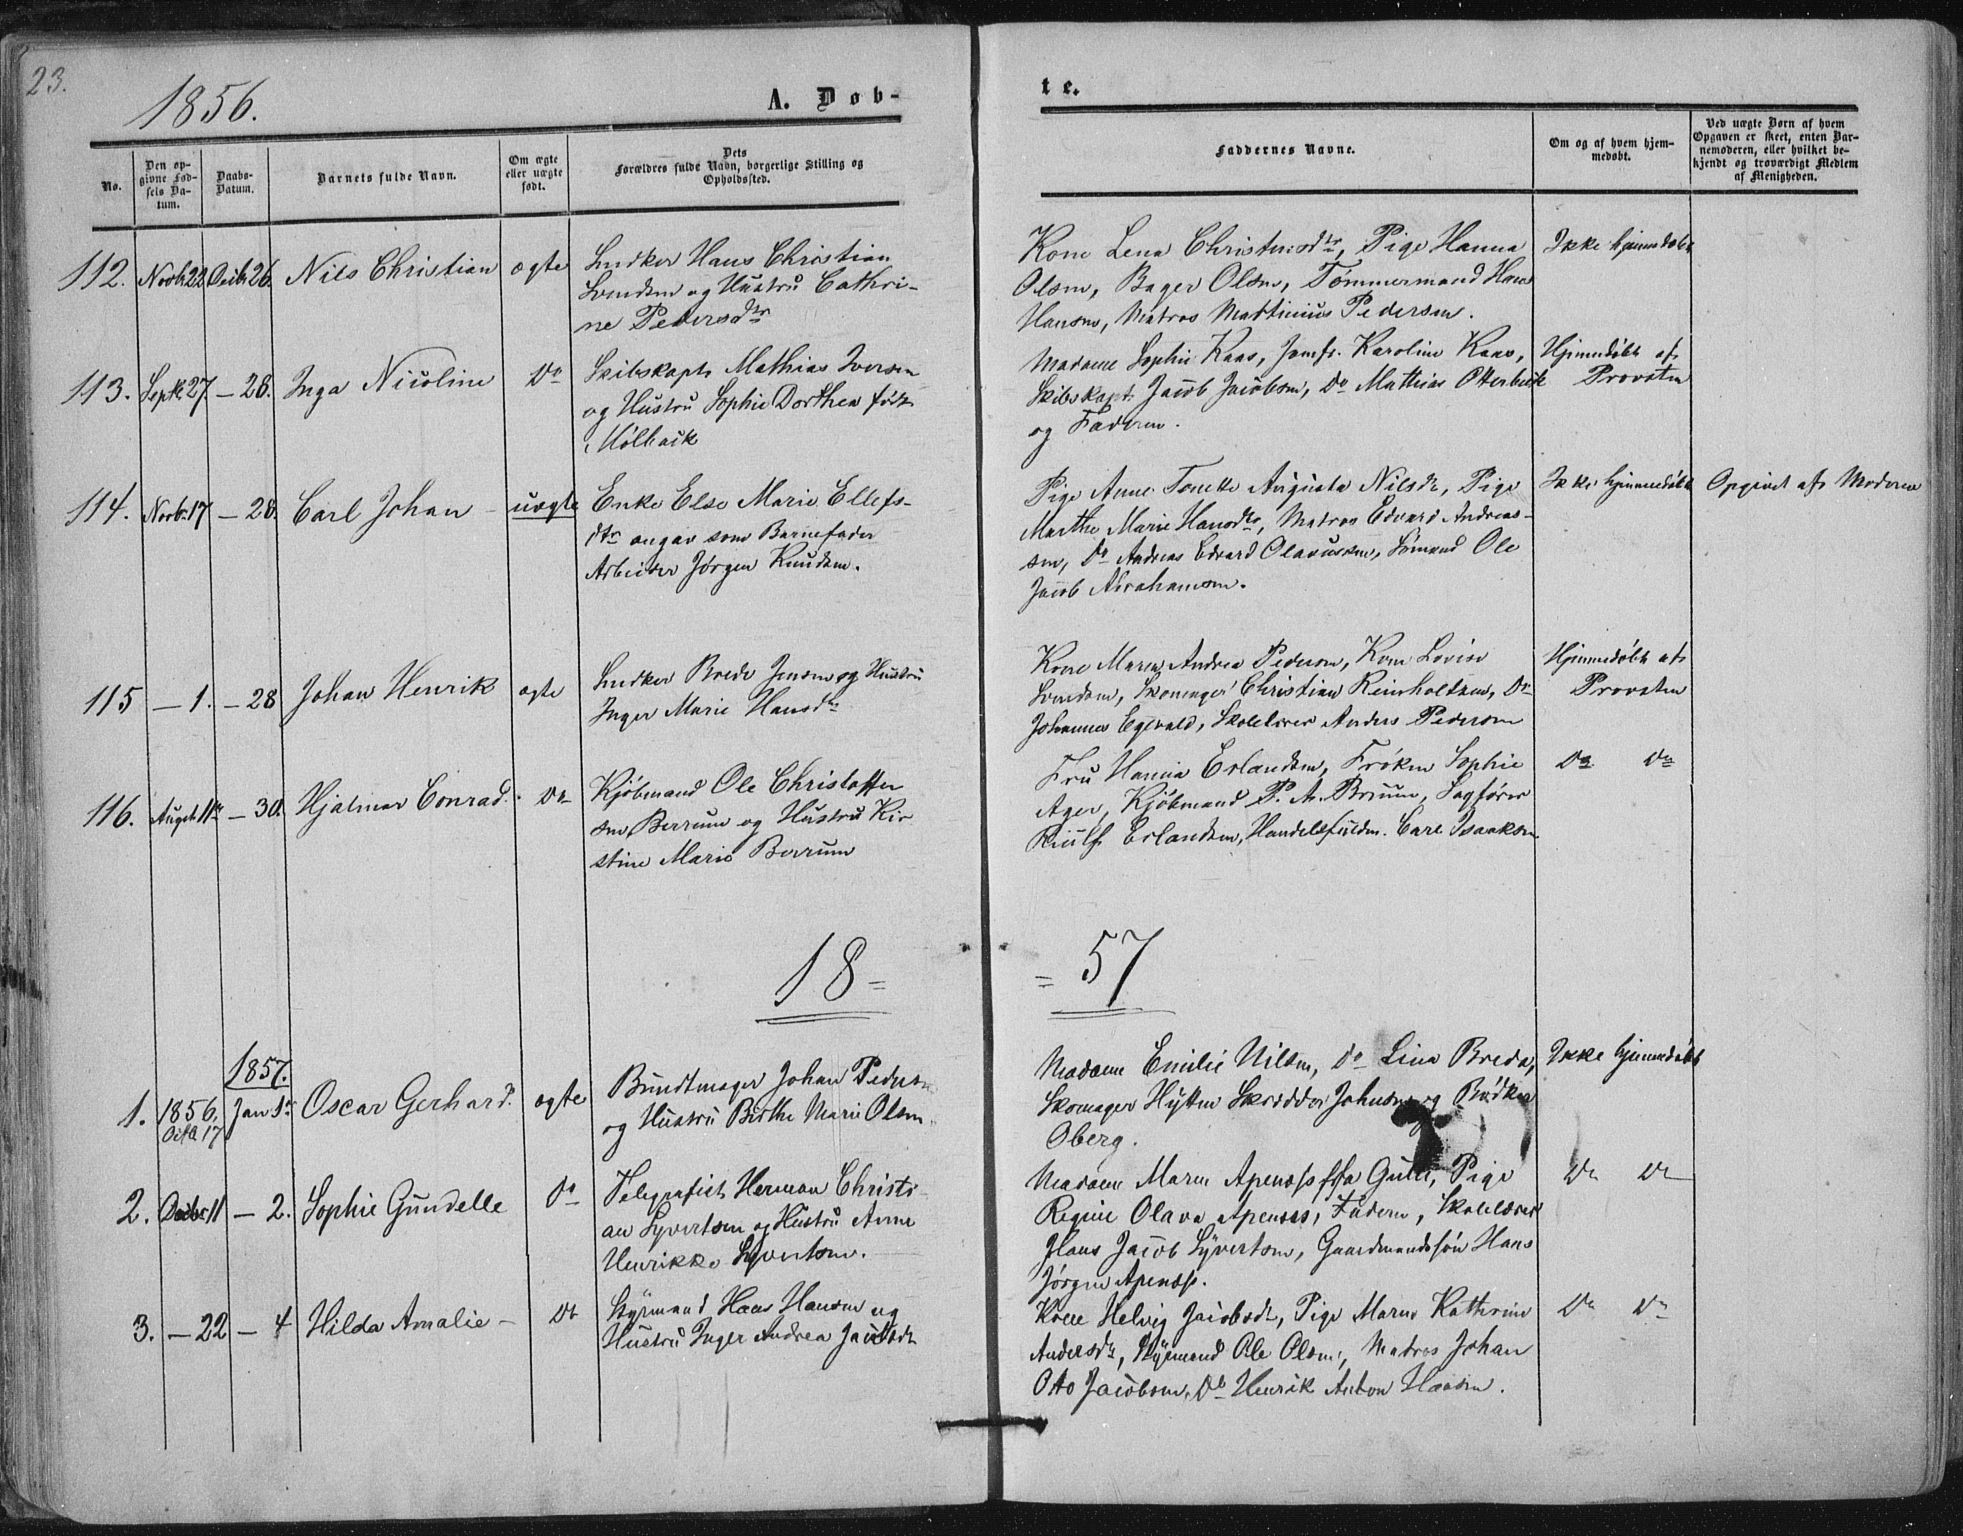 23.
1856.
A. Døb-
te.
No.
Den op-
givne Fød-
sels Da-
tum.
Daabs-
Datum.
Barnets fulde Navn.
Om ægte
eller uægte
født.
Dets
Forældres fulde Navn, borgerlige Stilling og
Opholdssted.
Faddernes Navne.
Om og af hvem hjem-
medøbt.
Ved uægte Børn af hvem
Opgaven er skeet, enten Bar-
nemoderen, eller hvilket be-
kjendt og troværdigt Medlem
af Menigheden.
112. Novbr 22 Decbr 26. Nils Christian ægte
Snedker Hans Christian
Svendsen og Hustru Cathri-
ne Pedersdtr
Kone Lena Christensdtr, Pige Hanna
Olsen, Bager Olsen, Tømmermand Hans
Hansen, Matros Martinius Pedersen.
Ikke hjemmedøbt
113. Septb 27. – 28. Inga Nicoline Do
Skibskapt. Mathias Iversen
og Hustru Sophie Dorthea født
Mølbach
Madame Sophie Kaas, Jomfr. Karoline Kaas,
Skibskapt. Jacob Jacobsen, Do Mathias Otterbech
og Faderen.
Hjemmedøbt af
Provsten
114. Novbr 17 – 28. Carl Johan – uægte
Enke Else Marie Ellefs-
dtr angav som Barnefader
Arbeider Jørgen Knudsen.
Pige Anne Tomine Augusta Nilsdtr, Pige
Marthe Marie Hansdtr, Matros Edvard Andreas-
sen, Do Andreas Edvard Olavussen, Sømand Ole
Jacob Abrahamsen.
Ikke hjemmedøbt
Opgivet af Moderen
115 – 1. – 28 Johan Henrik ægte
Snedker Brede Jensen og Hustru
Inger Marie Hansdtr
Kone Maren Andrea Pedersen, Kone Lovise
Svendsen, Skomager Christian Reinholtsen, Do
Johannes Egevald, Skolelærer Anders Pedersen
Hjemmedøbt af
Provsten
116. Augst 11te – 30. Hjalmar Conrad. Do
Kjøbmand Ole Christoffer
sen Berrum og Hustru Kir
stine Marie Berrum
Fru Hanna Erlandsen, Frøken Sophie
Ager, Kjøbmand P. A. Bruun, Sagfører
Riulf Erlandsen, Handelsfuldm. Carl Isaaksen
Do Do
18 =
= 57
1857.
1. 1856. Octb 17 Jan 1ste Oscar Gerhard. ægte
Bundtmager Johan Pedersen
og Hustru Birthe Marie Olsen.
Madame Emilie Nilsen, Do Lina Breda,
Skomager Hytten Skrædder Johnsen og Bødker
Oberg.
Ikke hjemmedøbt
2. Decbr 11 – 2. Sophie Gundelle Do
Telegrafist Herman Christi
an Syvertsen og Hustru Anne
Henrikke Syvertsen.
Madame Maren Apenæs Gulli, Pige
Regine Olava Apenæs, Faderen, Skolelærer
Hans Jacob Syvertsen, Gaardmandssøn Hans
Jørgen Apenæs.
Do Do
3. – 22 – 4 Hilda Amalie – Do
Styrmand Hans Hansen og
Hustru Inger Andrea Jacobsdtr
Kone Helvig Jacobsdtr, Pige Maren Kathrine
Andersdtr, Styrmand Ole Olsen, Matros Johan
Otto Jacobsen, Do Henrik Anton Hansen.
Do Do